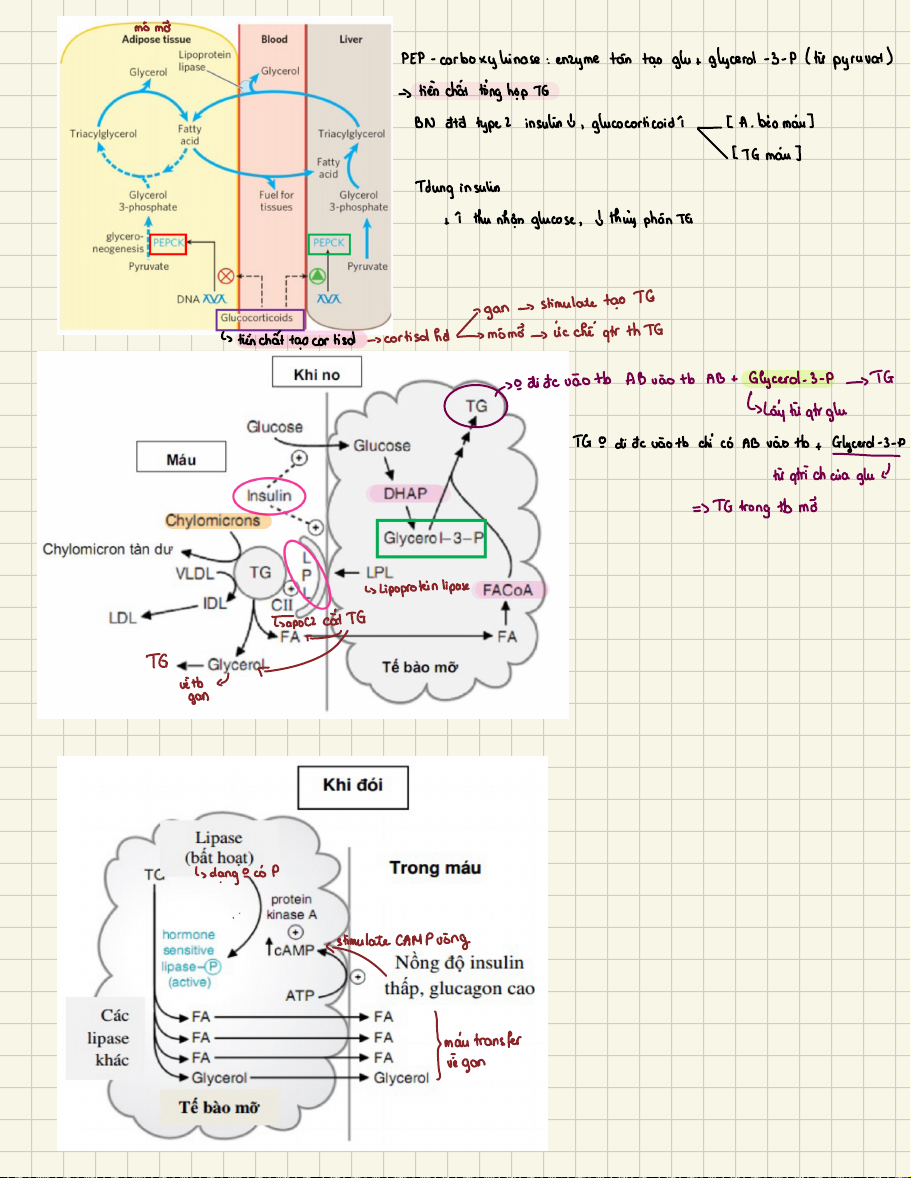 mô mỡ
Adipose tissue
Blood
Liver
Lipoprotein
lipase
Glycerol
Glycerol
Triacylglycerol
Fatty
acid
Triacylglycerol
Fatty
acid
Glycerol
3-phosphate
Fuel for
tissues
Glycerol
3-phosphate
glycero-
neogenesis
PEPCK
PEPCK
Pyruvate
Pyruvate
DNA
Glucocorticoids
↳ tiền chất tạo cortisol → cortisol hđ
gan → stimulate tạo TG
mô mỡ → ức chế qtr th TG
PEP-carboxykinase : enzyme tân tạo glu + glycerol-3-P (từ pyruvat)
→ tiền chất tổng hợp TG
BN đtđ type 2 insulin ↓, glucocorticoid ↑
[A. béo máu]
[TG máu]
Tdụng insulin
↓ ↑ thu nhận glucose, ↓ thủy phân TG
Khi no
Máu
Glucose
Glucose
TG
+
Insulin
DHAP
+
Chylomicrons
Glycerol-3-P
Chylomicron tàn dư
TG
LPL
LPL
↳ Lipoprotein lipase
VLDL
+
FACoA
IDL
CII
LDL
↳ apoC2 cắt TG
FA
FA
TG
Glycerol
Tế bào mỡ
về tb
gan
→ o đi đc vào tb AB vào tb AB + Glycerol-3-P → TG
↳ Lấy từ qtr glu
TG o đi đc vào tb chỉ có AB vào tb + Glycerol-3-P
từ qtrì ch của glu
=> TG trong tb mỡ
Khi đói
Lipase
(bất hoạt)
↳ dạng o có P
Trong máu
protein
kinase A
+
hormone
sensitive
lipase-P
(active)
↑cAMP
stimulate CAMP vòng
Nồng độ insulin
thấp, glucagon cao
+
ATP
Các
lipase
khác
FA
FA
FA
FA
FA
FA
Glycerol
Glycerol
máu transfer
về gan
Tế bào mỡ